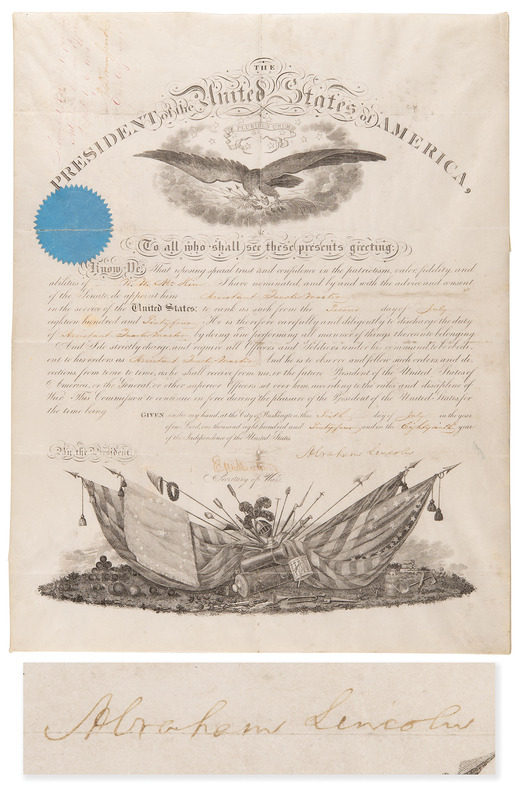 THE
PRESIDENT of the United States of AMERICA,
E PLURIBUS UNUM
To all who shall see these presents greeting:
Know Ye, That reposing special trust and confidence in the patriotism, valor, fidelity and
abilities of I have nominated, and by and with the advice and consent
of the Senate, do appoint him Assistant Quarter Master
in the service of the United States: to rank as such from the day of July
eighteen hundred and Sixty four. He is therefore carefully and diligently to discharge the duty
of Assistant Quarter Master by doing and performing all manner of things thereunto belonging.
And I do strictly charge and require all Officers and Soldiers under his command to be obedi-
ent to his orders as Assistant Quarter Master. And he is to observe and follow such orders and di-
rections, from time to time, as he shall receive from me, or the future President of the United States of
America, or the General or other superior Officers set over him according to the rules and discipline of
War. This Commission to continue in force during the pleasure of the President of the United States for
the time being.
GIVEN under my hand at the City of Washington, this day of July in the year
of our Lord, one thousand eight hundred and Sixty four and in the Eighty ninth year
of the Independence of the United States.
By the President,
Abraham Lincoln
Secretary of War.
Abraham Lincoln